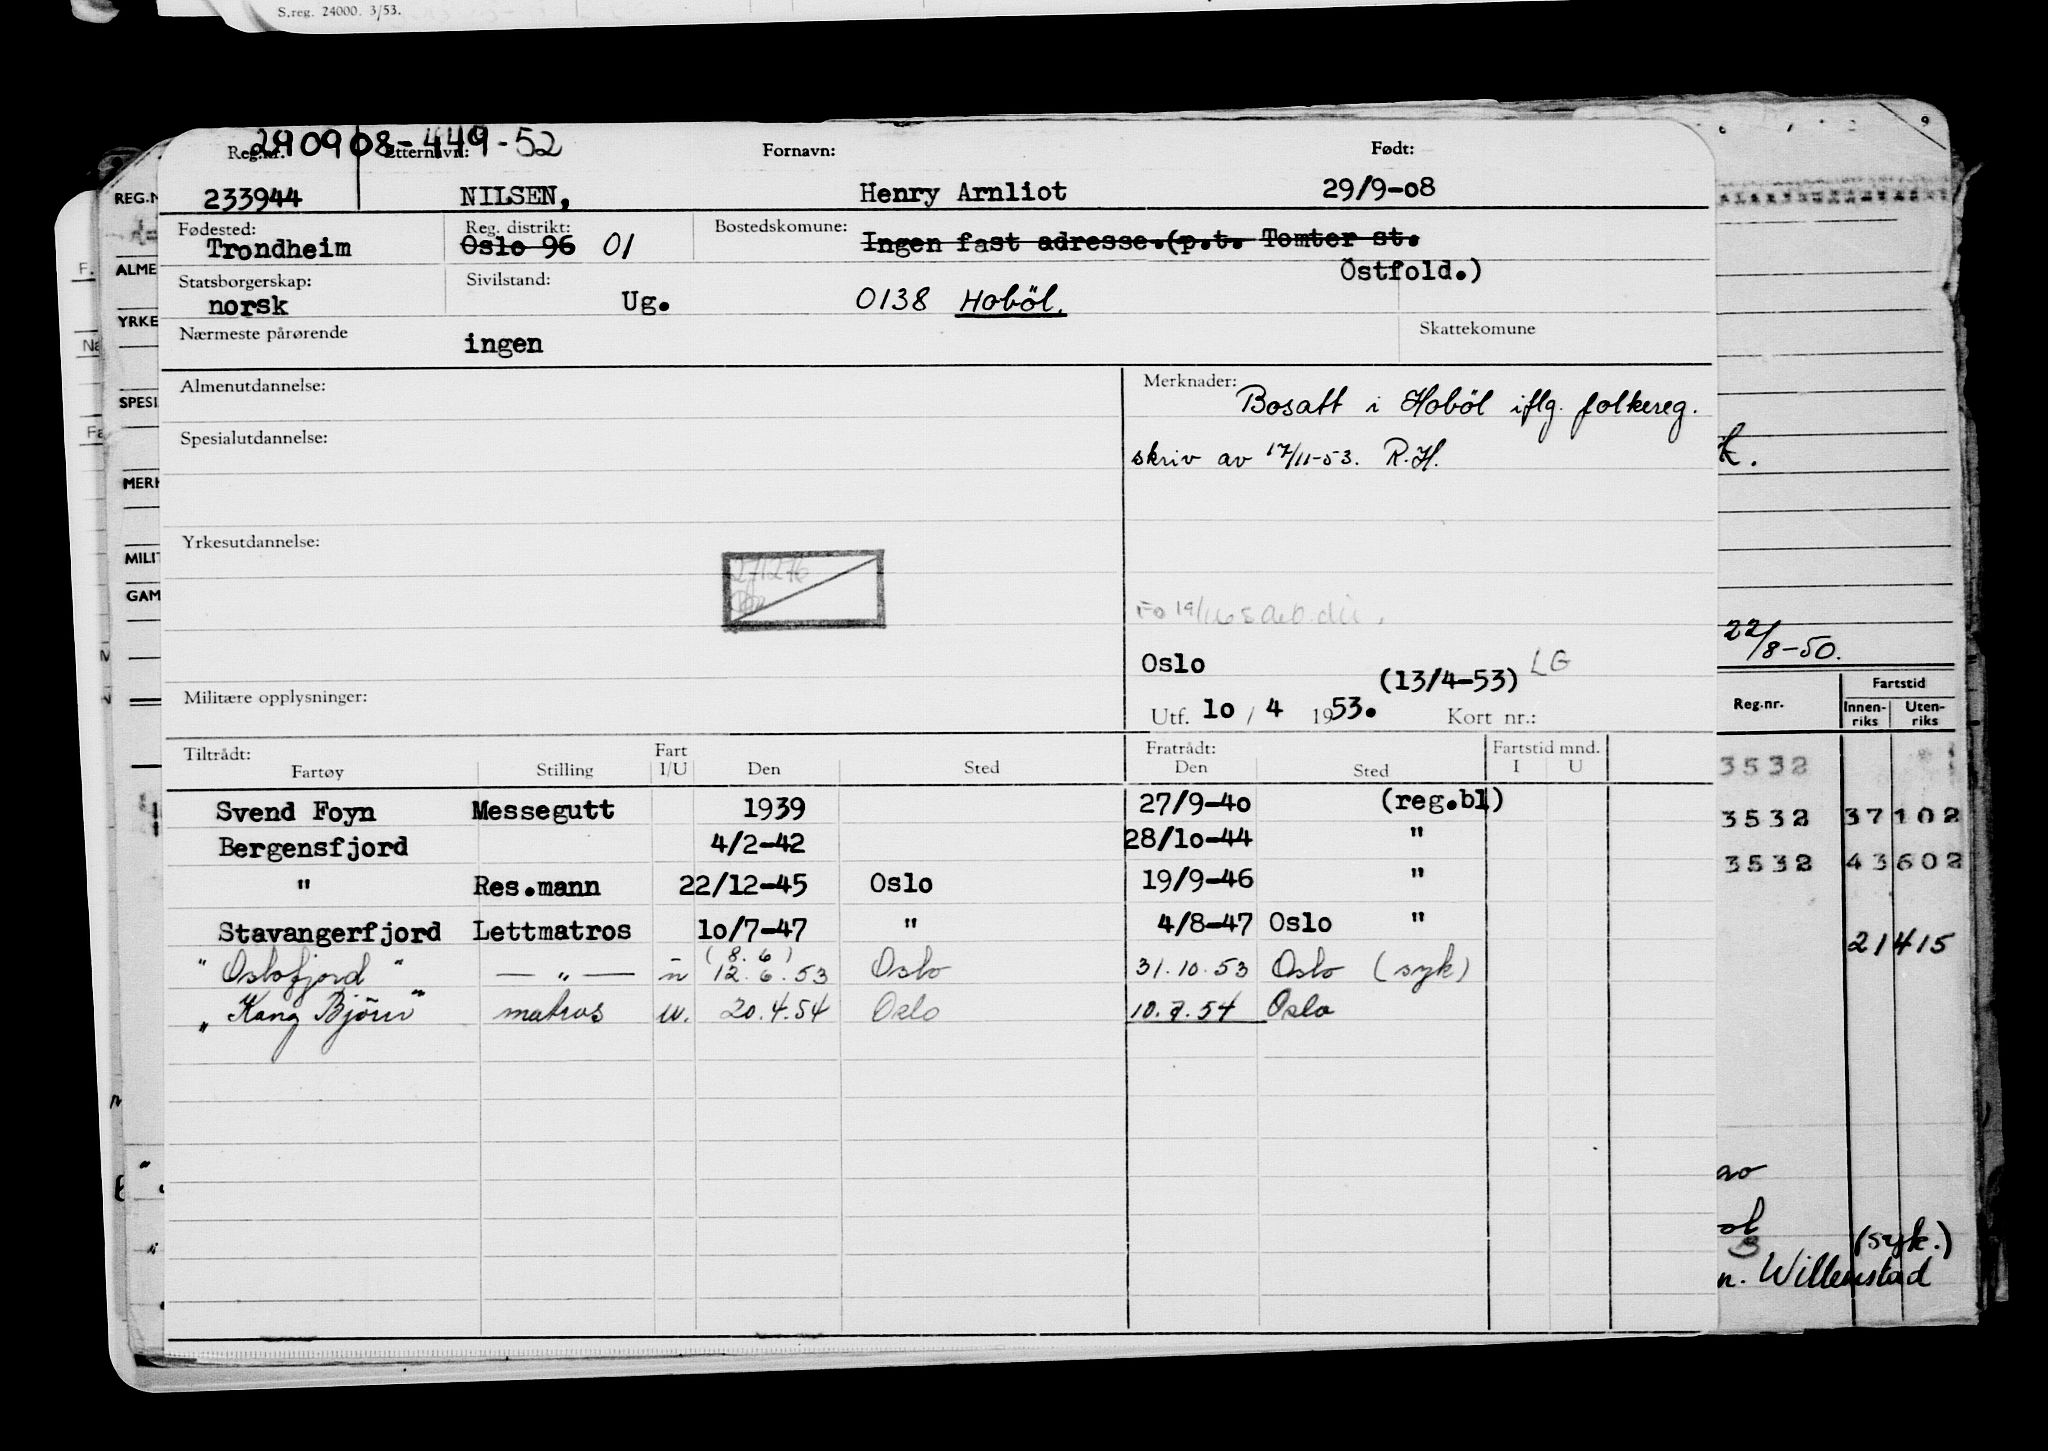 S.reg. 24000. 3/53.
290908-449-52
Reg.nr. Etternavn: Fornavn: Født:
233944 NILSEN, Henry Arnliot 29/9-08
Fødested: Reg. distrikt: Bostedskomune:
Trondheim Oslo 96 01 Ingen fast adresse.(p.t. Tomter st.
Östfold.)
Statsborgerskap: Sivilstand:
norsk Ug. 0138 Hoböl.
Nærmeste pårørende ingen Skattekomune
Almenutdannelse: Merknader: Bosatt i Hoböl iflg. folkereg.
Spesialutdannelse: skriv av 17/11-53. R.H.
Yrkesutdannelse:
271276
Oslo (13/4-53) LG
Militære opplysninger: Utf. 10 / 4 1953. Kort nr.:
Tiltrådt: Fart Fratrådt: Fartstid mnd.
Fartøy Stilling I/U Den Sted Den Sted I U
Svend Foyn Messegutt 1939 27/9-40 (reg.bl)
Bergensfjord 4/2-42 28/10-44 "
" Res.mann 22/12-45 Oslo 19/9-46 "
Stavangerfjord Lettmatros 10/7-47 " 4/8-47 Oslo "
(8.6)
"Oslofjord" — " — u 12.6.53 Oslo 31.10.53 Oslo (syk)
"Kong Björn" matros u. 20.4.54 Oslo 10.7.54 Oslo
REG.N
ALME
YRKE
SPESI
MERK
MILIT
GAM
22/8-50.
Reg.nr. Fartstid
Innen-riks Uten-riks
3532
3532 37102
3532 43602
21415
(syk.)
n. Willemstad